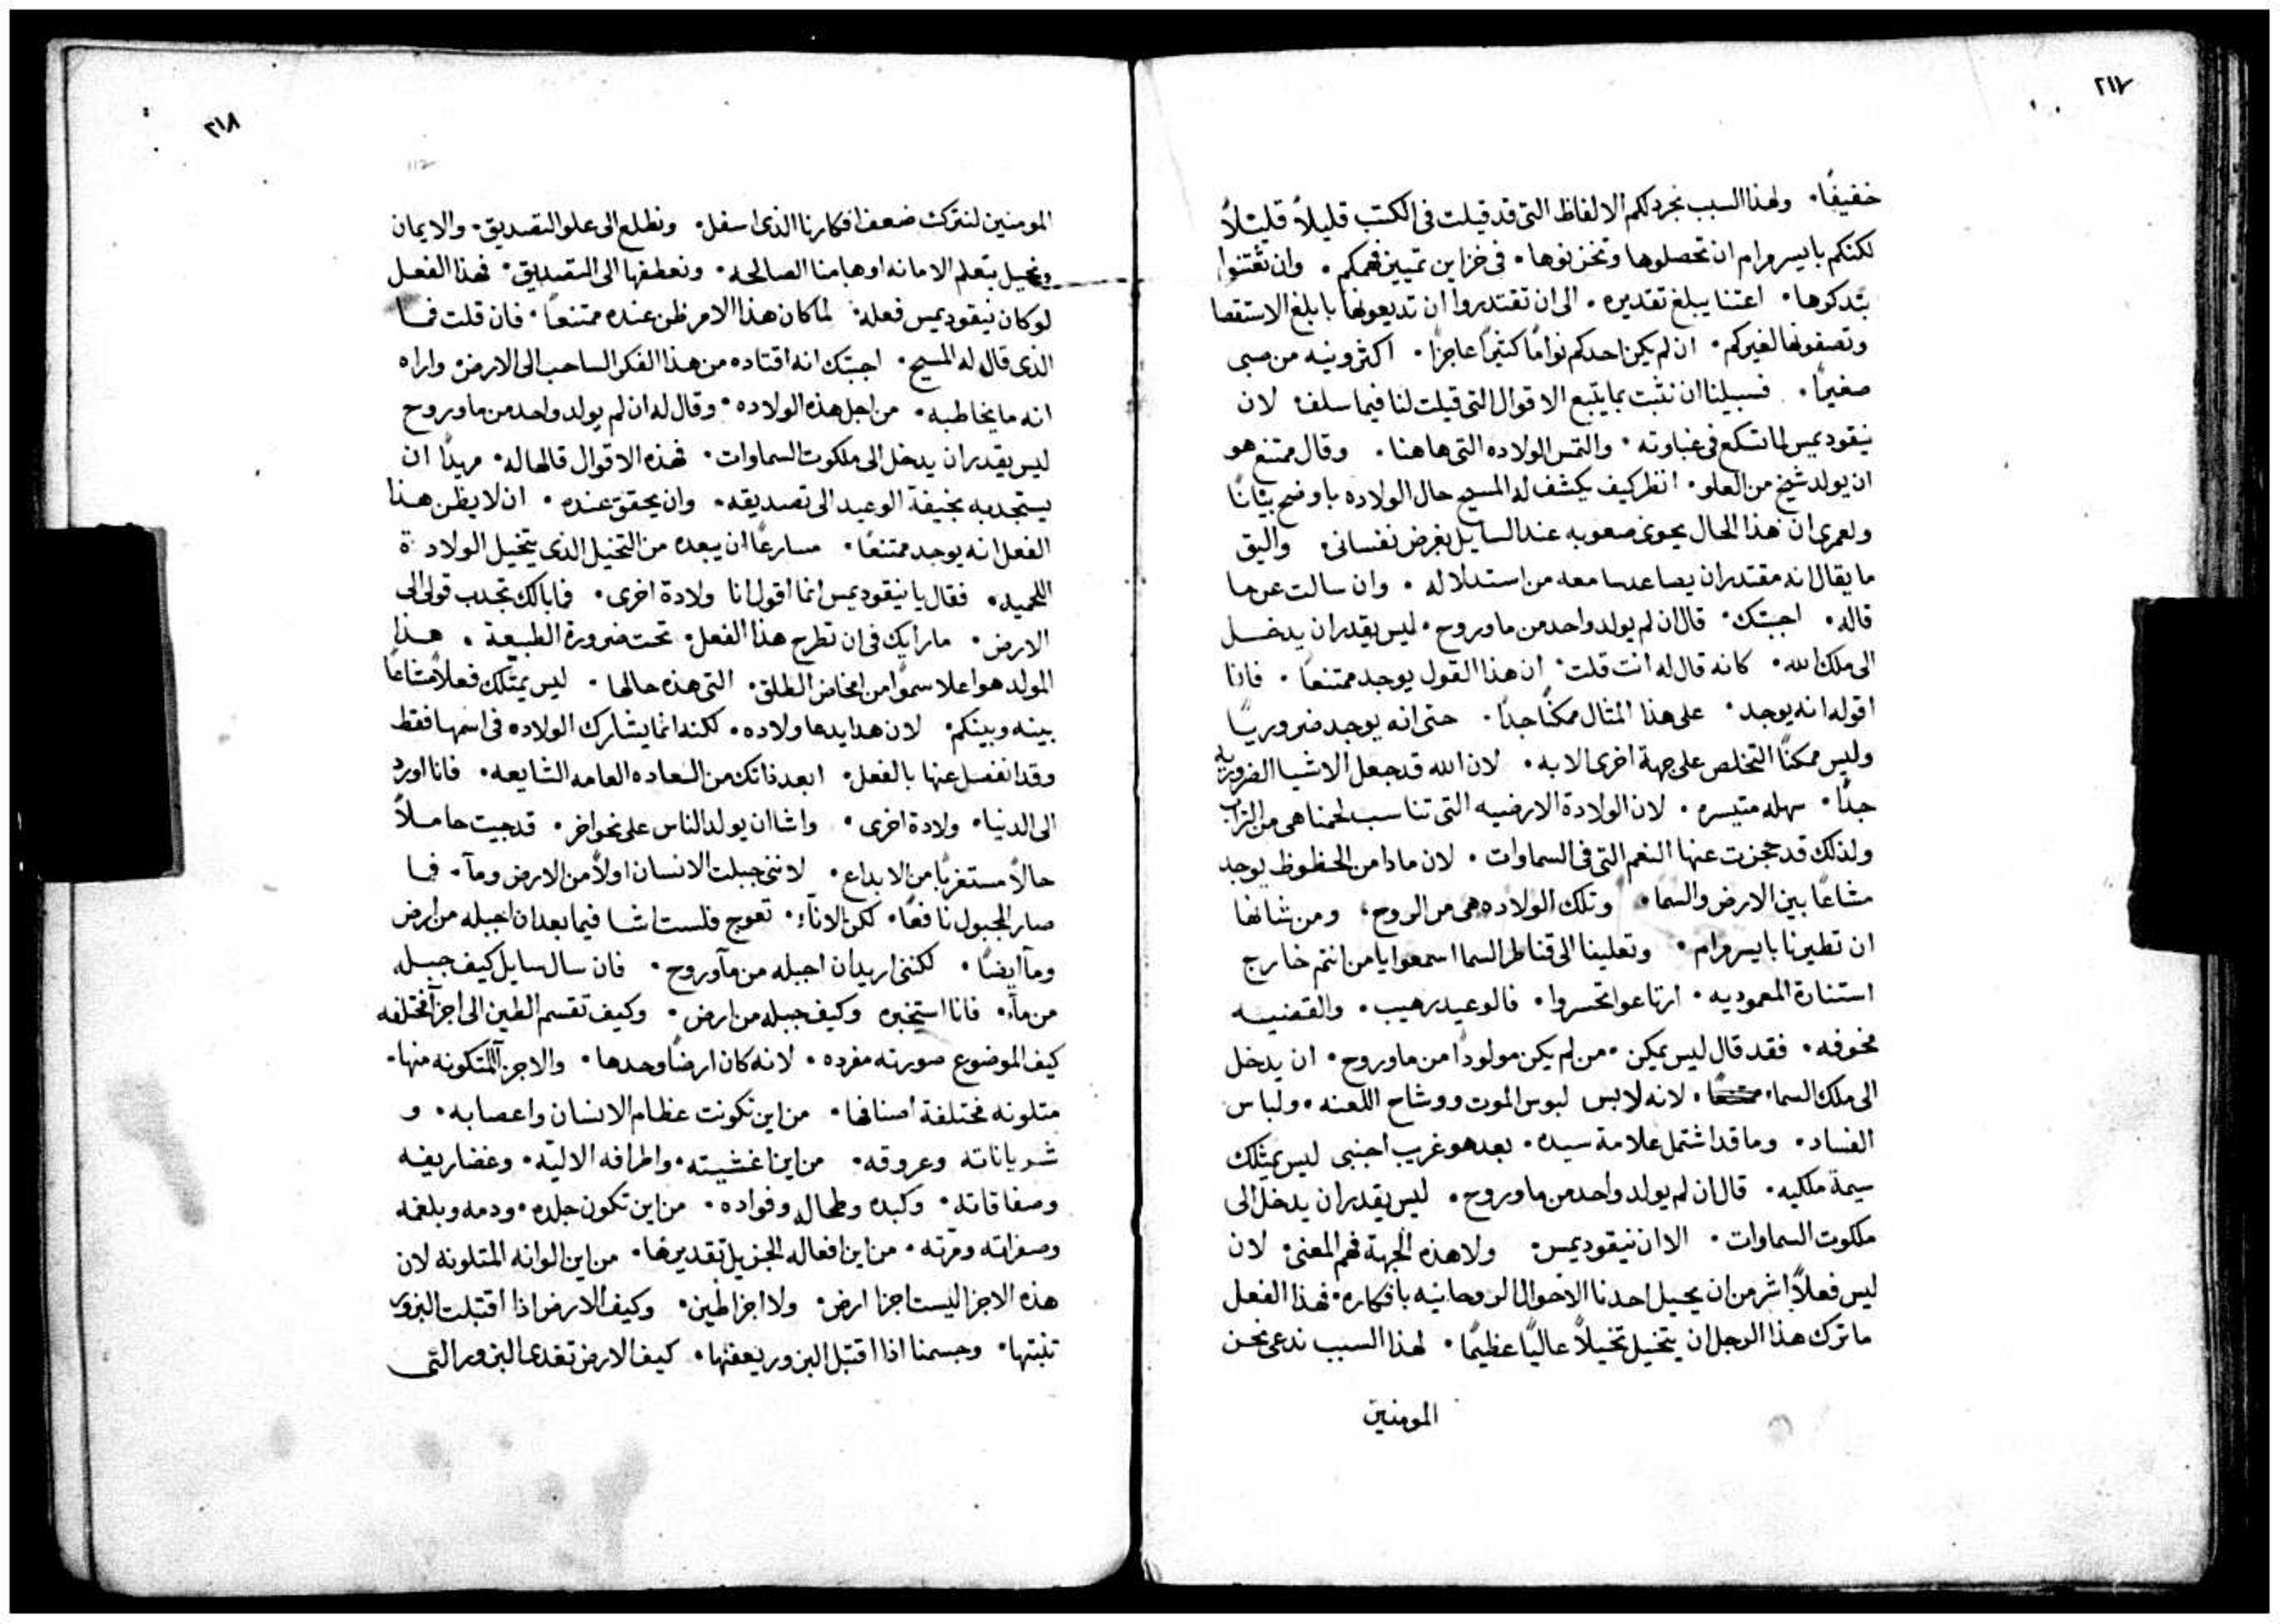 ٢١٧
خفيفًا٠ ولهذا السبب نجرد لكم الالفاظ التى قد قيلت فى الكتب قليلاً قليلاً
لكنكم بايسر مرام ان تحصلوها وتخزنوها٠ فى خزاين تمييز فهمكم٠ وان تعتنوا
بتدكرها٠ اعتنا يبلغ تقديره٠ الى ان تقتدروا ان تديعونها بابلغ الاستقصا
وتصفونها لغيركم٠ ان لم يكن احدكم نوامًا كثيرًا عاجزًا٠ اكثر ونيه من صبى
صغير٠ فسبيلنا ان نثبت بما يتبع الاقوال التى قيلت لنا فيما سلف٠ لان
نيقوديمس لما تسكع فى غباوته٠ والتمس الولاده التى هاهنا٠ وقال ممتنع هو
ان يولد شيخ من العلو٠ انظر كيف يكشف له المسيح حال الولاده باوضح بيانًا
ولعمرى ان هذا الحال يحوى صعوبه عند السايل بغرض نفسانى٠ واليق
ما يقال انه مقتدر ان يصاعد سامعه من استدلاله٠ وان سالت عن ما
قاله٠ اجبتك٠ قال ان لم يولد واحد من ما وروح٠ ليس يقدر ان يدخل
الى ملك الله٠ كانه قال له انت قلت٠ ان هذا القول يوجد ممتنعًا٠ فانا
اقول انه يوجد٠ على هذا المثال ممكنًا جدًا٠ حتى انه يوجد ضروريًا
وليس ممكنًا التخلص على جهة اخرى الا به٠ لان الله قد جعل الاشيا الضروريه
جدًا٠ سهله متيسره٠ لان الولادة الارضيه التى تناسب لحمنا هى من التراب
ولذلك قد حجزت عنها النعم التى فى السماوات٠ لان ماذا من الحظوظ يوجد
مشاعًا بين الارض والسما٠ وتلك الولاده هى من الروح٠ ومن شانها
ان تطيرنا بايسر مرام٠ وتعلينا الى قناطر السما اسمعوا يا من انتم خارج
استنارة المعموديه٠ ارتاعوا تحسروا٠ فالوعيد رهيب٠ والقضيه
مخوفه٠ فقد قال ليس يمكن٠ من لم يكن مولودًا من ما وروح٠ ان يدخل
الى ملك السما٠ لانه لابس لبوس الموت ووشاح اللعنه٠ ولباس
الفساد٠ وما قد اشتمل علامة سيده٠ بعد هو غريب اجنبى ليس يمتلك
سيمة ملكيه٠ قال ان لم يولد واحد من ما وروح٠ ليس يقدر ان يدخل الى
ملكوت السماوات٠ الا ان نيقوديمس٠ ولا هذه الجهة فهم المعنى٠ لان
ليس فعلاً اشر من ان يحيل احدنا الاحوال الروحانيه بافكاره٠ فهذا الفعل
ما ترك هذا الرجل ان يتخيل تخيلاً عاليًا عظيمًا٠ لهذا السبب ندعى نحن
المومنين
٢١٨
112
المومنين لنترك ضعف افكارنا الذى اسفل٠ ونطلع الى علو التصديق٠ والايمان
ونحيل بتعلم الامانه اوهامنا الصالحه٠ ونعطفها الى التصديق٠ فهذا الفعل
لو كان نيقوديمس فعله٠ لما كان هذا الامر ظن عنده ممتنعًا٠ فان قلت فما
الذى قال له المسيح٠ اجبتك انه اقتاده من هذا الفكر الساحب الى الارض واراه
انه ما يخاطبه٠ من اجل هذه الولاده٠ وقال له ان لم يولد واحد من ما وروح
ليس يقدر ان يدخل الى ملكوت السماوات٠ فهذه الاقوال قالها له٠ مريدًا ان
يستجدبه بخيفة الوعيد الى تصديقه٠ وان يحقق عنده٠ ان لا يظن هذا
الفعل انه يوجد ممتنعًا٠ مسارعًا ان يبعده من التخيل الذى يتخيل الولادة
اللحميه٠ فقال يا نيقوديمس انما اقول انا ولادة اخرى٠ فما بالك تجدب قولى الى
الارض٠ ما رايك فى ان تطرح هذا الفعل٠ تحت ضرورة الطبيعة٠ هذا
المولد هو اعلا سموًا من امخاض الطلق٠ التى هذه حالها٠ ليس يمتلك فعلاً مشاعًا
بينه وبينكم٠ لان هدا يدعا ولاده٠ لكنه انما يشارك الولاده فى اسمها فقط
وقد انفصل عنها بالفعل٠ ابعد ذاتك من العاده العامه الشايعه٠ فانا اورد
الى الدنيا٠ ولادة اخرى٠ واشا ان يولد الناس على نحو اخر٠ قد جيت حاملاً
حالاً مستغربًا من الابداع٠ لاننى جبلت الانسان اولاً من الارض ومآ٠ فما
صار المجبول نافعًا٠ لكن الانآء٠ تعوج فلست اشا فيما بعد ان اجبله من ارض
ومآ ايضًا٠ لكننى اريد ان اجبله من مآ وروح٠ فان سال سايل كيف جبله
من مآء٠ فانا استخبره وكيف جبله من ارض٠ وكيف تقسم الطين الى اجزآ مختلفه
كيف الموضوع صورته مفرده٠ لانه كان ارضًا وحدها٠ والاجزآ المتكونه منها٠
متلونه مختلفة اصنافها٠ من اين تكونت عظام الانسان واعصابه٠ و
شرياناته وعروقه٠ من اين اغشيته٠ واطرافه الاليه٠ وغضاريفه
وصفاقاته٠ وكبده وطحاله وفواده٠ من اين تكون جلده٠ ودمه وبلغمه
وصفراته ومرته٠ من اين افعاله الجزيل تقديرها٠ من اين الوانه المتلونه لان
هذه الاجزا ليست اجزا ارض٠ ولا اجزا طين٠ وكيف الارض اذا اقتبلت البزور
تنبتها٠ وجسمنا اذا اقتبل البزور يعفنها٠ كيف الارض تغدى البزور التى